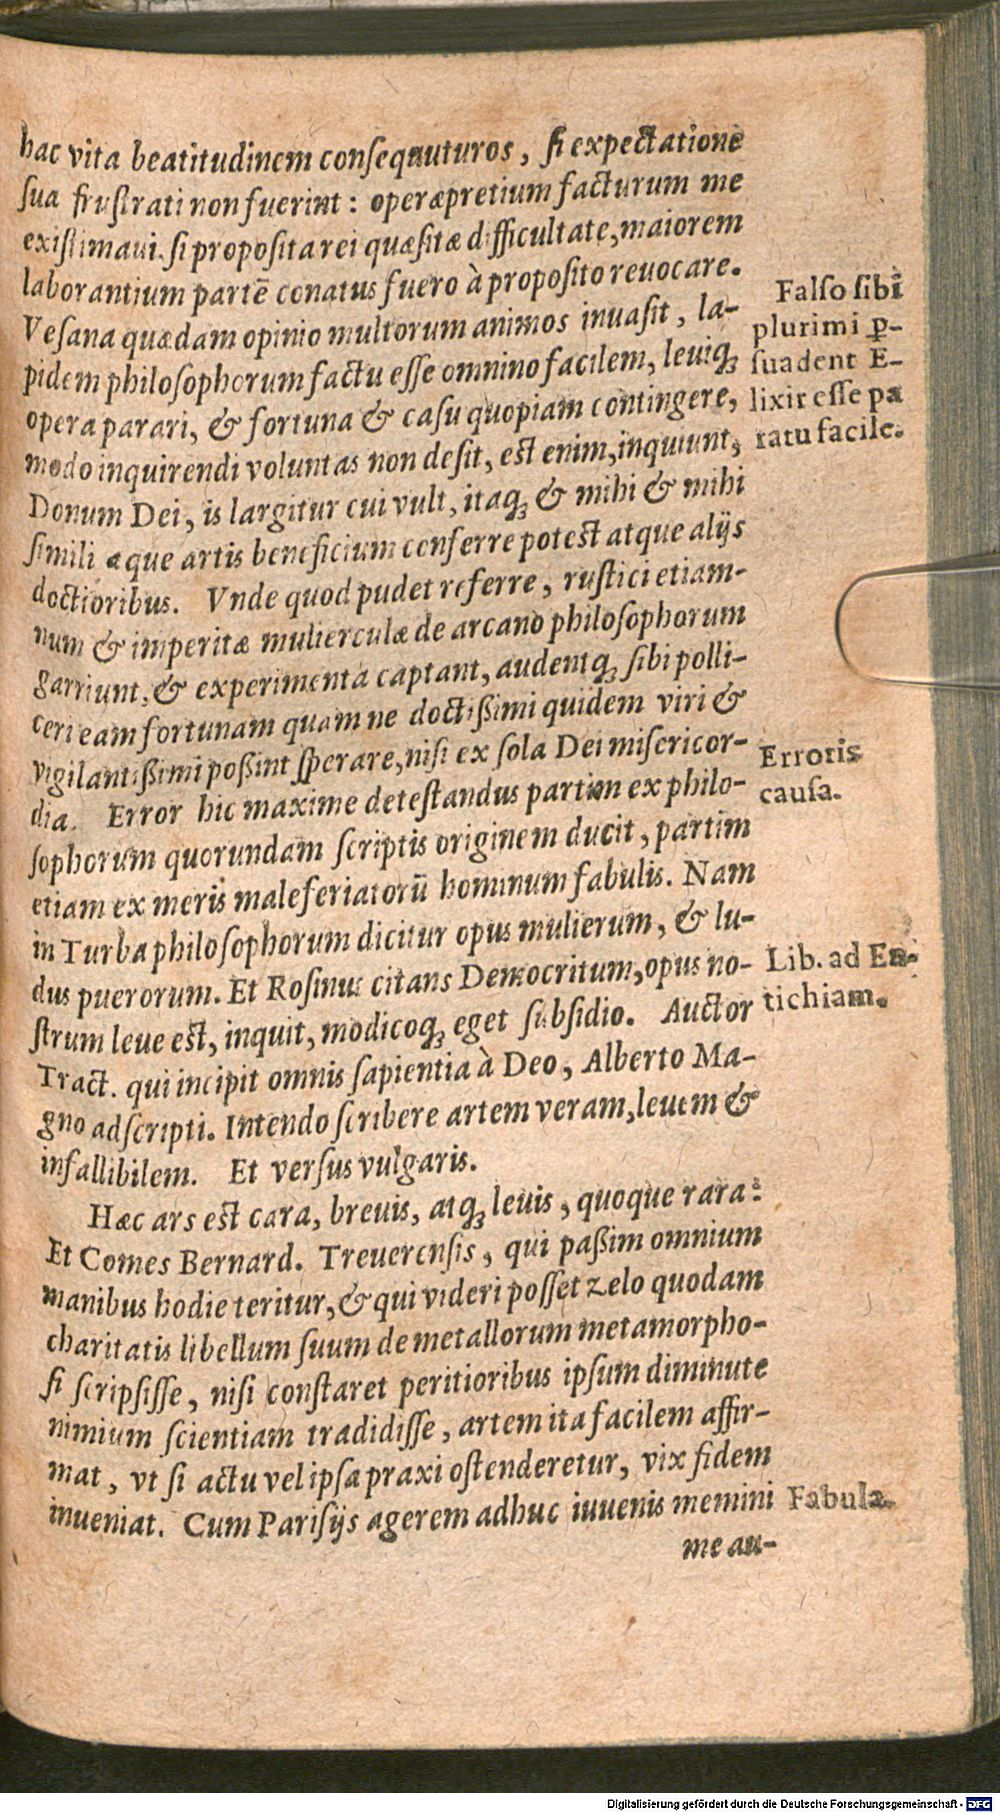 hac vita beatitudinem conſequuturos, ſi expectatione
ſua fruſtrati non fuerint: operæpretium facturum me
exiſtimaui. ſi propoſita rei quæſitæ difficultate, maiorem
laborantium partē conatus fuero à propoſito reuocare.
Veſana quædam opinio multorum animos inuaſit, la-
pidem philoſophorum factu eſſe omnino facilem, leuiq́;
opera parari, & fortuna & caſu quopiam contingere,
modo inquirendi voluntas non deſit, eſt enim, inquiunt,
Donum Dei, is largitur cui vult, itaq; & mihi & mihi
ſimili æque artis beneficium conferre poteſt atque alijs
doctioribus. Vnde quod pudet referre, ruſtici etiam-
num & imperitæ mulierculæ de arcano philoſophorum
garriunt, & experimenta captant, audentq; ſibi polli-
ceri eam fortunam quam ne doctißimi quidem viri &
vigilantißimi poßint ſperare, niſi ex ſola Dei miſericor-
dia. Error hic maxime deteſtandus partim ex philo-
ſophorum quorundam ſcriptis originem ducit, partim
etiam ex meris maleferiatorū hominum fabulis. Nam
in Turba philoſophorum dicitur opus mulierum, & lu-
dus puerorum. Et Roſinus citans Democritum, opus no-
ſtrum leue eſt, inquit, modicoq; eget ſubſidio. Auctor
Tract. qui incipit omnis ſapientia à Deo, Alberto Ma-
gno adſcripti. Intendo ſcribere artem veram, leuem &
infallibilem. Et verſus vulgaris.
Hæc ars eſt cara, breuis, atq; leuis, quoque rara:
Et Comes Bernard. Treuerenſis, qui paßim omnium
manibus hodie teritur, & qui videri poſſet zelo quodam
charitatis libellum ſuum de metallorum metamorpho-
ſi ſcripſiſſe, niſi conſtaret peritioribus ipſum diminute
nimium ſcientiam tradidiſſe, artem ita facilem affir-
mat, vt ſi actu vel ipſa praxi oſtenderetur, vix fidem
inueniat. Cum Pariſijs agerem adhuc iuuenis memini
me au-
Falſo ſibi
plurimi ꝑ-
ſuadent E-
lixir eſſe pa
ratu facile.
Erroris
cauſa.
Lib. ad Eu-
tichiam.
Fabula.
Digitalisierung gefördert durch die Deutsche Forschungsgemeinschaft - DFG